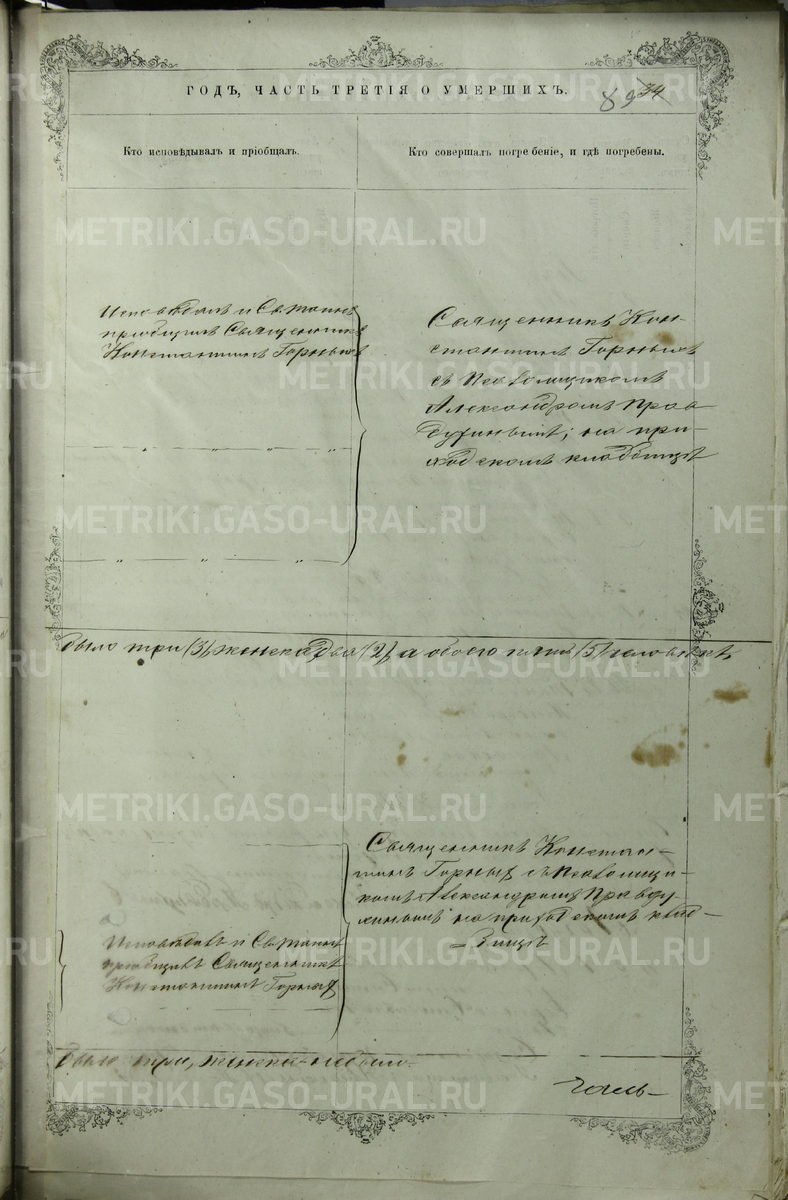 ГОДЪ, ЧАСТЬ ТРЕТІЯ О УМЕРШИХЪ.
89 34
Кто исповѣдывалъ и пріобщалъ.
Кто совершалъ погребеніе, и гдѣ погребены.
Исповѣдалъ и Св. Таинъ
пріобщилъ Священникъ
Константинъ Горныхъ
" " " "
" " "
Священникъ Кон-
стантинъ Горныхъ
съ Псаломщикомъ
Александромъ Прав
духинымъ; на при-
ходскомъ кладбищѣ
было три /3/ женска два /2/ а обоего пять /5/ человѣкъ
Священникъ Констан-
тинъ Горныхъ съ Псаломщи-
комъ Александромъ Правду-
хинымъ на приходскомъ клад-
бищѣ
Исповѣдалъ и Св. Таинъ
пріобщилъ Священникъ
Константинъ Горныхъ
было три, женска-небыло.
METRIKI.GASO-URAL.RU